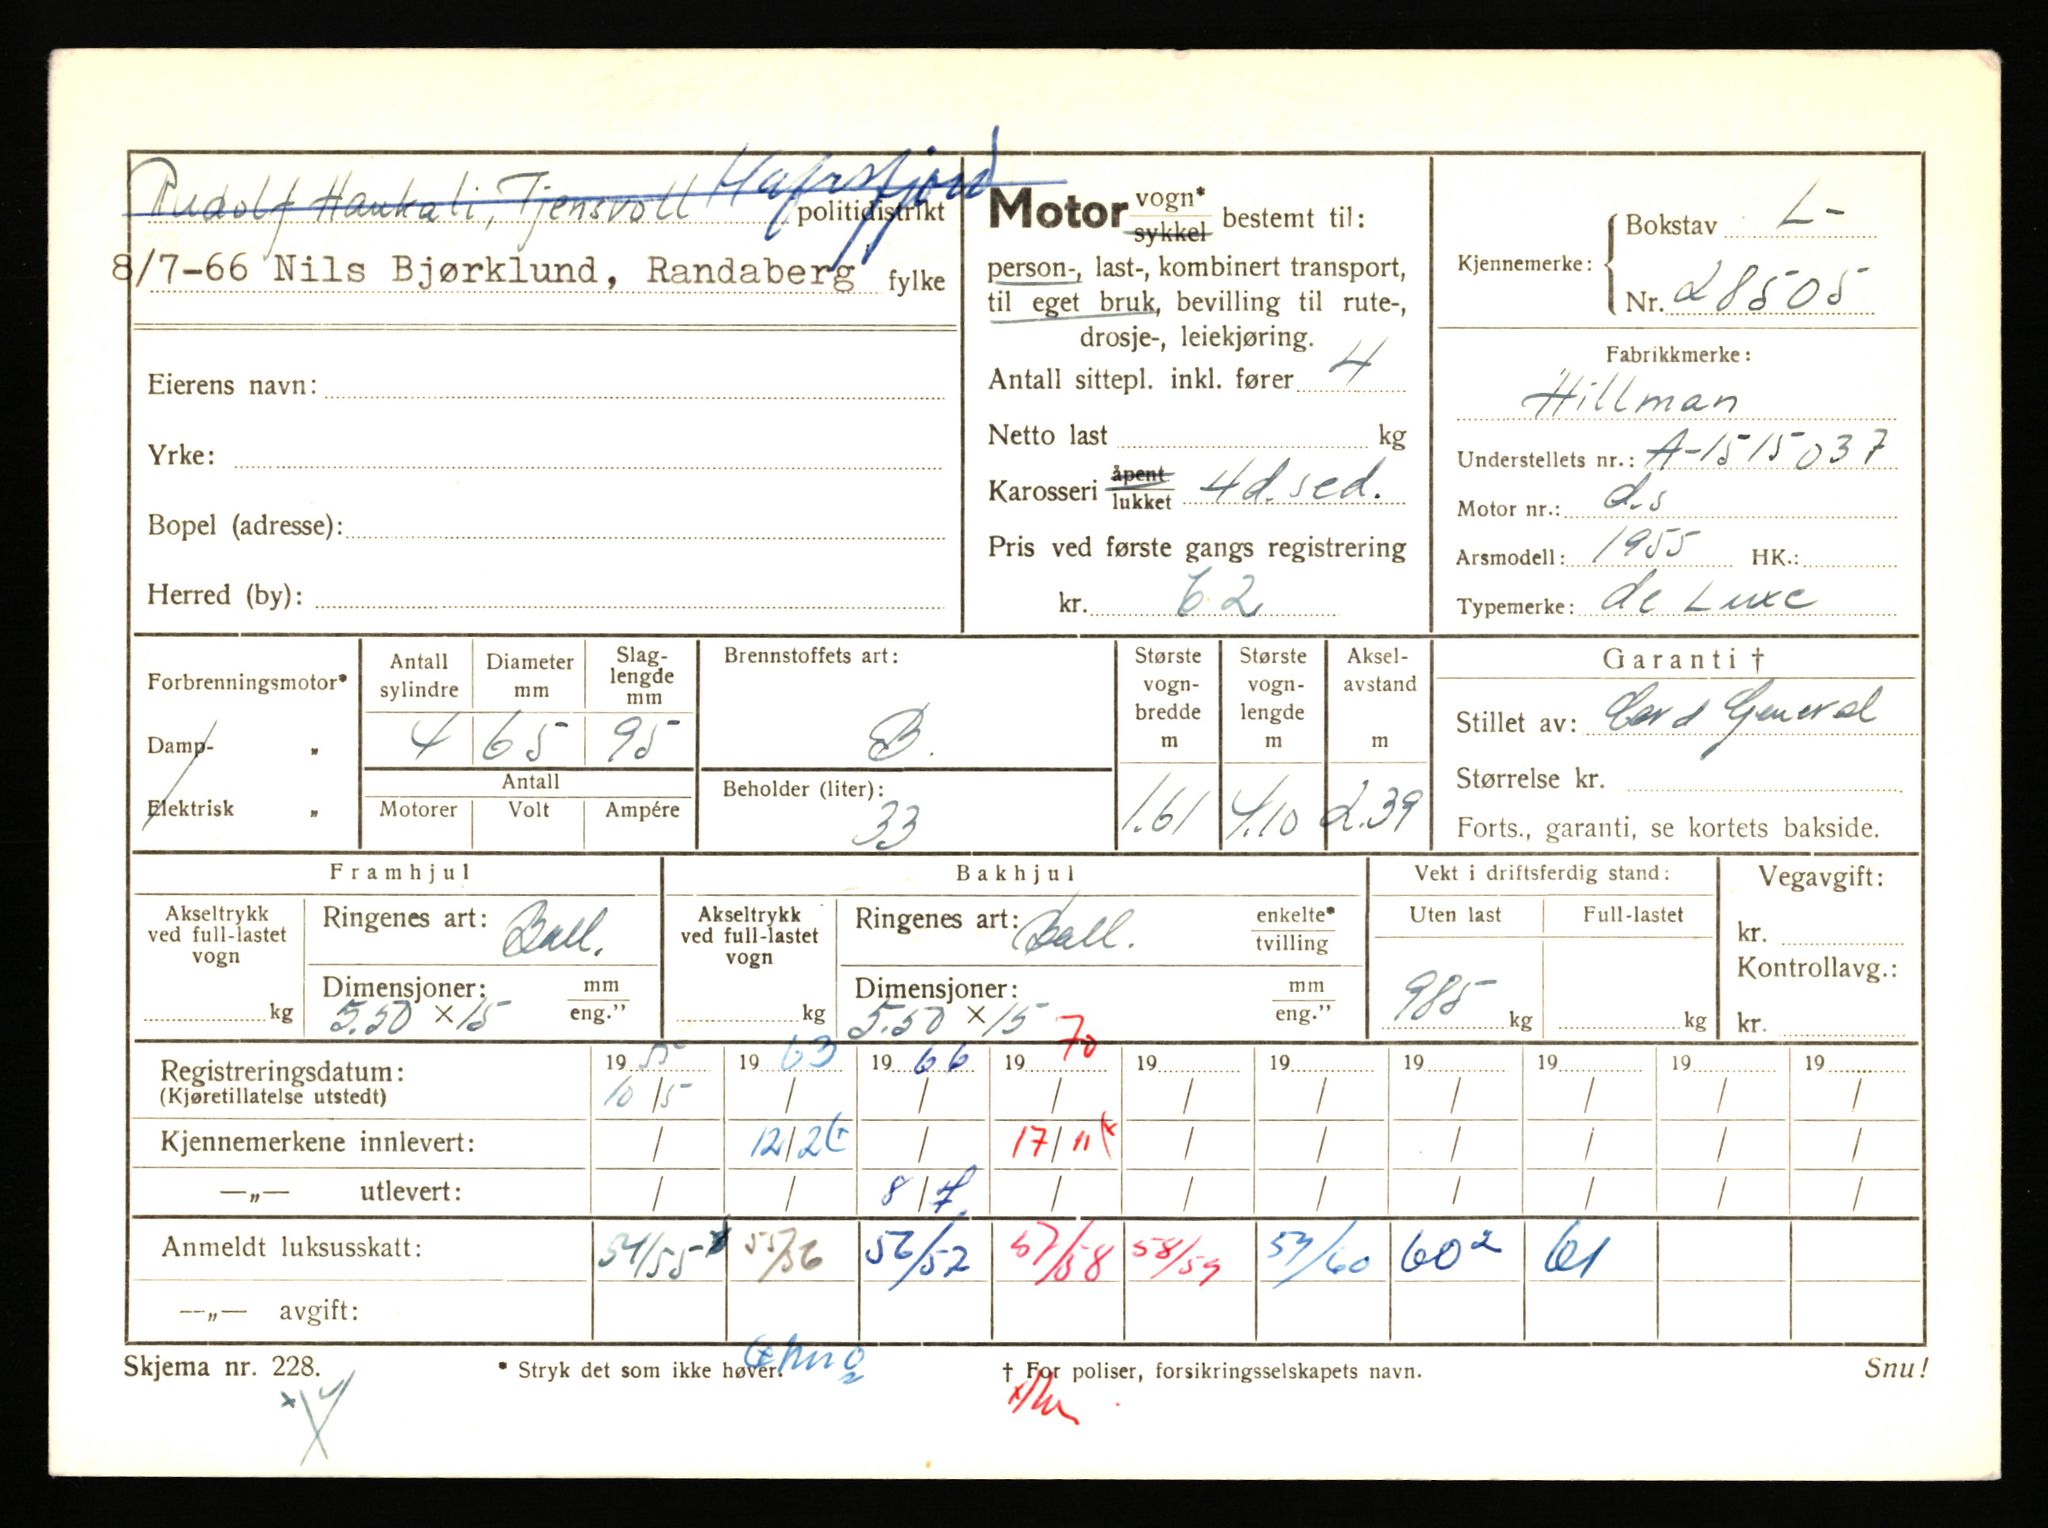 Rudolf Haukali, Tjensvoll Hafrsfjord politidistrikt
8/7-66 Nils Bjørklund, Randaberg fylke
Eierens navn:
Yrke:
Bopel (adresse):
Herred (by):
Motor vogn* sykkel bestemt til:
person-, last-, kombinert transport,
til eget bruk, bevilling til rute-,
drosje-, leiekjøring.
Antall sittepl. inkl. fører 4
Netto last kg
Karosseri åpent lukket 4d. sed.
Pris ved første gangs registrering
kr. 62
Kjennemerke: Bokstav L-
Nr. 28505
Fabrikkmerke:
Hillman
Understellets nr.: A-1515037
Motor nr.: d.s
Arsmodell: 1955 HK.:
Typemerke: de Luxe
Forbrenningsmotor*
Damp- „
Elektrisk „
Antall sylindre Diameter mm Slag-lengde mm
4 65 95
Antall
Motorer Volt Ampére
Brennstoffets art:
B.
Beholder (liter):
33
Største vogn-bredde m
1.61
Største vogn-lengde m
4.10
Aksel-avstand m
2.39
Garanti †
Stillet av: General
Størrelse kr.
Forts., garanti, se kortets bakside.
Framhjul
Akseltrykk ved full-lastet vogn
kg
Ringenes art: Ball.
Dimensjoner: mm eng."
5.50 × 15
Bakhjul
Akseltrykk ved full-lastet vogn
kg
Ringenes art: Ball. enkelte* tvilling
Dimensjoner: mm eng."
5.50 × 15
Vekt i driftsferdig stand:
Uten last Full-lastet
985 kg kg
Vegavgift:
kr.
Kontrollavg.:
kr.
Registreringsdatum: 19 55 19 63 19 66 19 70 19 19 19 19 19 19
(Kjøretillatelse utstedt) 10/5 / / / / / / / / /
Kjennemerkene innlevert: / 12/2 / 17/11 / / / / / /
—„— utlevert: / / 8/7 / / / / / / /
Anmeldt luksusskatt: 54/55 55/56 56/57 57/58 58/59 59/60 60² 61
—„— avgift:
Skjema nr. 228. * Stryk det som ikke høver. † For poliser, forsikringsselskapets navn. Snu!